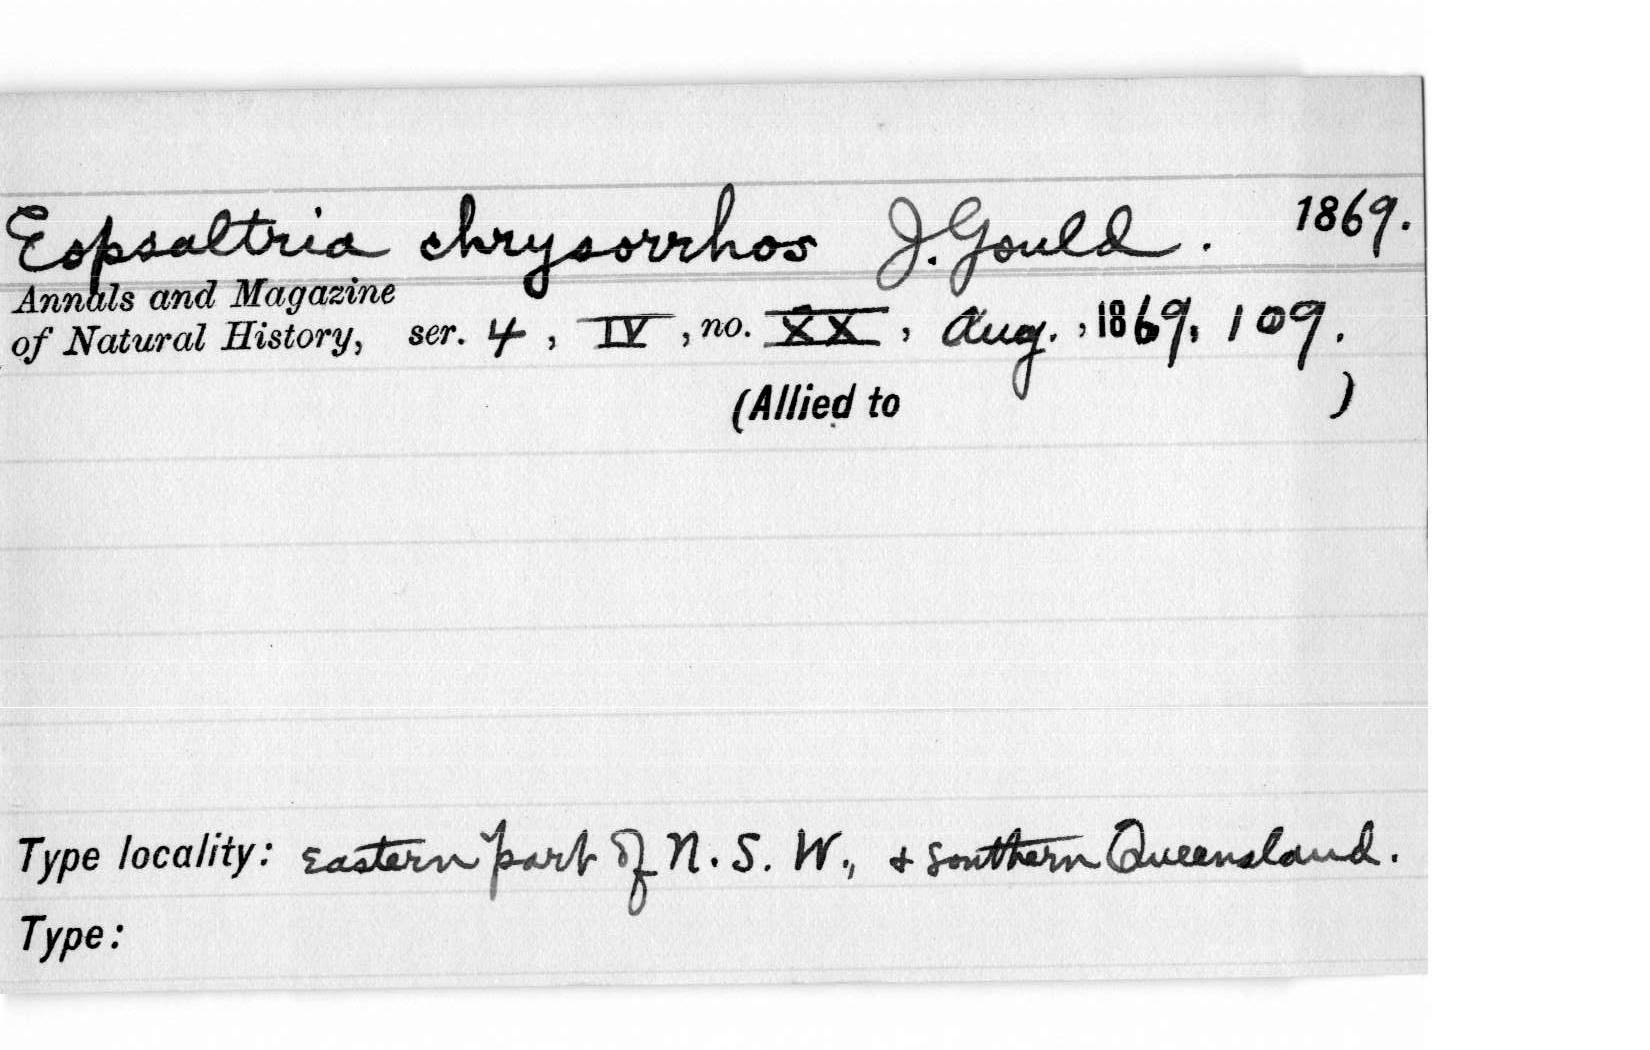 Eopsaltria chrysorrhos J. Gould. 1869.
Annals and Magazine
of Natural History, ser. 4, IV, no. XX, Aug., 1869, 109.
(Allied to )
Type locality: Eastern part of N. S. W., & Southern Queensland.
Type: